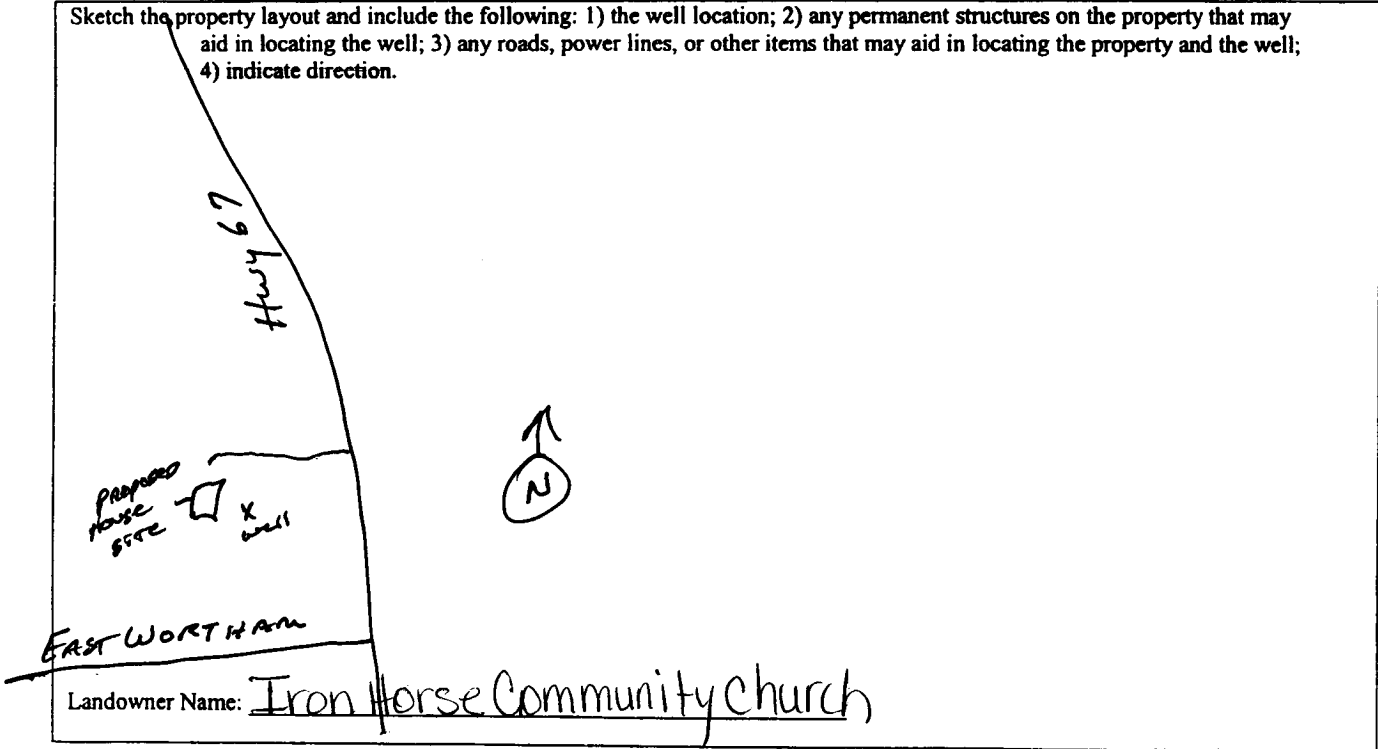 Sketch the property layout and include the following: 1) the well location; 2) any permanent structures on the property that may
aid in locating the well; 3) any roads, power lines, or other items that may aid in locating the property and the well;
4) indicate direction.
Hwy 67
N
PROPOSED
HOUSE
SITE
X
well
EAST WORTHAM
Landowner Name: Iron Horse Community Church